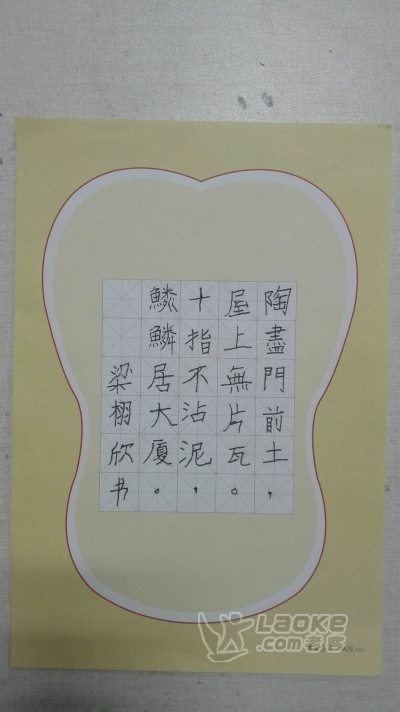 陶盡門前土，
屋上無片瓦。
十指不沾泥，
鱗鱗居大廈。
梁栩欣书
LAOKE
.com老客